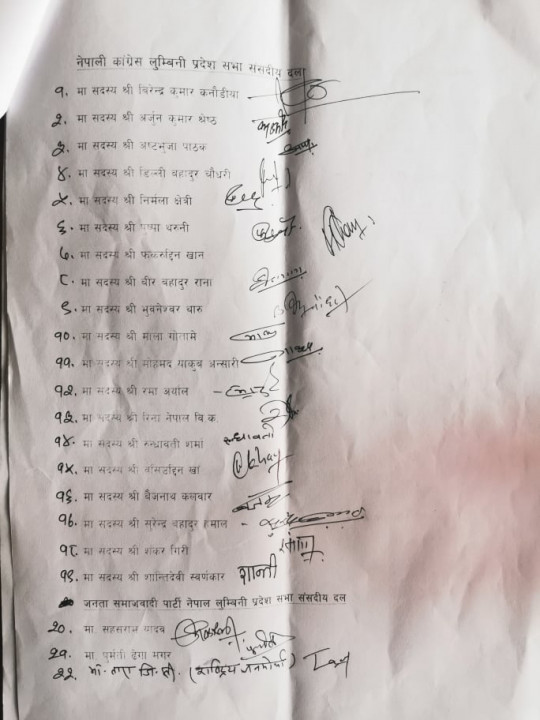 नेपाली कांग्रेस लुम्बिनी प्रदेश सभा संसदीय दल
१. मा सदस्य श्री विरेन्द्र कुमार कनौडीया
२. मा सदस्य श्री अर्जुन कुमार श्रेष्ठ
३. मा सदस्य श्री अष्टभुजा पाठक
४. मा सदस्य श्री डिल्ली बहादुर चौधरी
५. मा सदस्य श्री निर्मला क्षेत्री
६. मा सदस्य श्री पुष्पा थरुनी
७. मा सदस्य श्री फकरुद्दिन खान
८. मा सदस्य श्री वीर बहादुर राना
९. मा सदस्य श्री भुवनेश्वर थारु
१०. मा सदस्य श्री माला गौतामे
११. मा सदस्य श्री मोहमद याकुब अन्सारी
१२. मा सदस्य श्री रमा अर्याल
१३. मा सदस्य श्री रिना नेपाल वि.क.
१४. मा सदस्य श्री सन्धावती शर्मा सन्धावती
१५. मा सदस्य श्री वसिउद्दिन खां
१६. मा सदस्य श्री बैजनाथ कलवार
१७. मा सदस्य श्री सुरेन्द्र बहादुर हमाल
१८. मा सदस्य श्री शंकर गिरी
१९. मा सदस्य श्री शान्तिदेवी स्वर्णकार शान्ती
जनता समाजवादी पार्टी नेपाल लुम्बिनी प्रदेश सभा संसदीय दल
२०. मा. सहसराम यादव
२१. मा. पुमती ढेगा मगर
२२. मा. तारा जि.सी. (राष्ट्रिय जनमोर्चा)